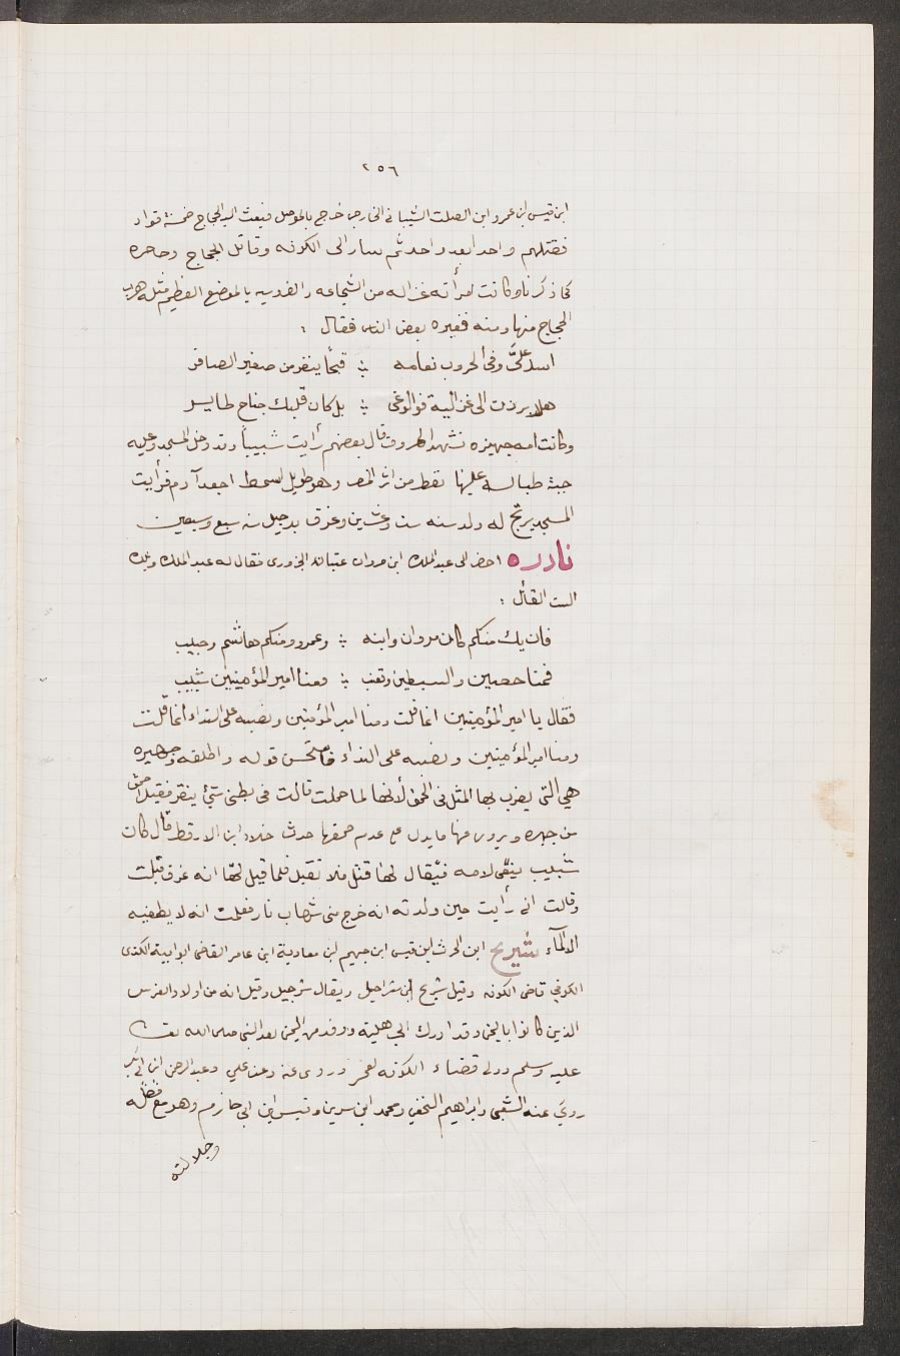 ٢٥٦
ابن قيس ابن عمرو ابن الصلت الشيباني الخارجي خرج بالموصل فبعث اليه الحجاج خمسة قواد
فقتلهم واحدا بعد واحد ثم سار الى الكوفه وقاتل الحجاج وحاصره
كما ذكرناه وكانت امرأته غزاله من الشجاعه والفروسيه بالموضع العظيم مثله هرب
الحجاج منها ومنه فعيره بعض الناس فقال :
اسد علىّ وفي الحروب نعامه ؞ فتخا ينفر من صفير الصافر
هلا برزت الى غزالة في الوغى ؞ بل كان قلبك جناح طاير
وكانت امه جهيزه تشهد الحروب قال بعضهم رأيت شبيبا وقد دخل المسجد وعليه
جبة طيالسه عليها نقط من اثر المطر وهو طويل اشمط اجعد آدم فرأيت
المسجد يرتج له ولد سنه ست وعشرين وغرق بدجيل سنه سبع وسبعين
نادره احضر الى عبد الملك ابن مروان عتبان الحروري فقال له عبد الملك
الست القائل :
فان يك منكم كان مروان وابنه ؞ وعمرو ومنكم هاشم وحبيب
فمنا حصين والبطين وقعنب ؞ ومنا امير المؤمنين شبيب
فقال يا امير المؤمنين انما قلت ومنا امير المؤمنين ونصبه على النداء انما قلت
ومنا امير المؤمنين ونصبه على النداء فاستحسن قوله واطلقه وجهيزه
هي التي يضرب بها المثل في الحمق لأنها لما حملت قالت في بطني شئ ينقر فقيل احمق
من جهيزه ويروى عنها ما يدل على عدم حمقها حدث خلاد ابن الارقط قال كان
شبيب ينعى لامه فيقال لها قتل فلا تقبل فلما قيل لها انه غرق قبلت
وقالت اني رأيت حين ولدته انه خرج مني شهاب نار فعلمت انه لا يطفيه
الا الماء شريح ابن الحرث ابن قيس ابن جهيم ابن معاوية ابن عامر القاضي ابو امية الكندي
الكوفي قاضي الكوفه وقيل شريح ابن شراحيل ويقال شرحبيل وقيل انه من اولاد الفرس
الذين كانوا باليمن وقد ادرك الجاهلية ووفد من اليمن بعد النبي صلى الله
عليه وسلم وولى قضاء الكوفه لعمر وروى عنه وعن علي وعبد الرحمن ابن ابي بكر
روى عنه الشعبي وابراهيم النخعي ومحمد ابن سيرين وقيس ابن ابي حازم وهو مع فضله
وجلالته